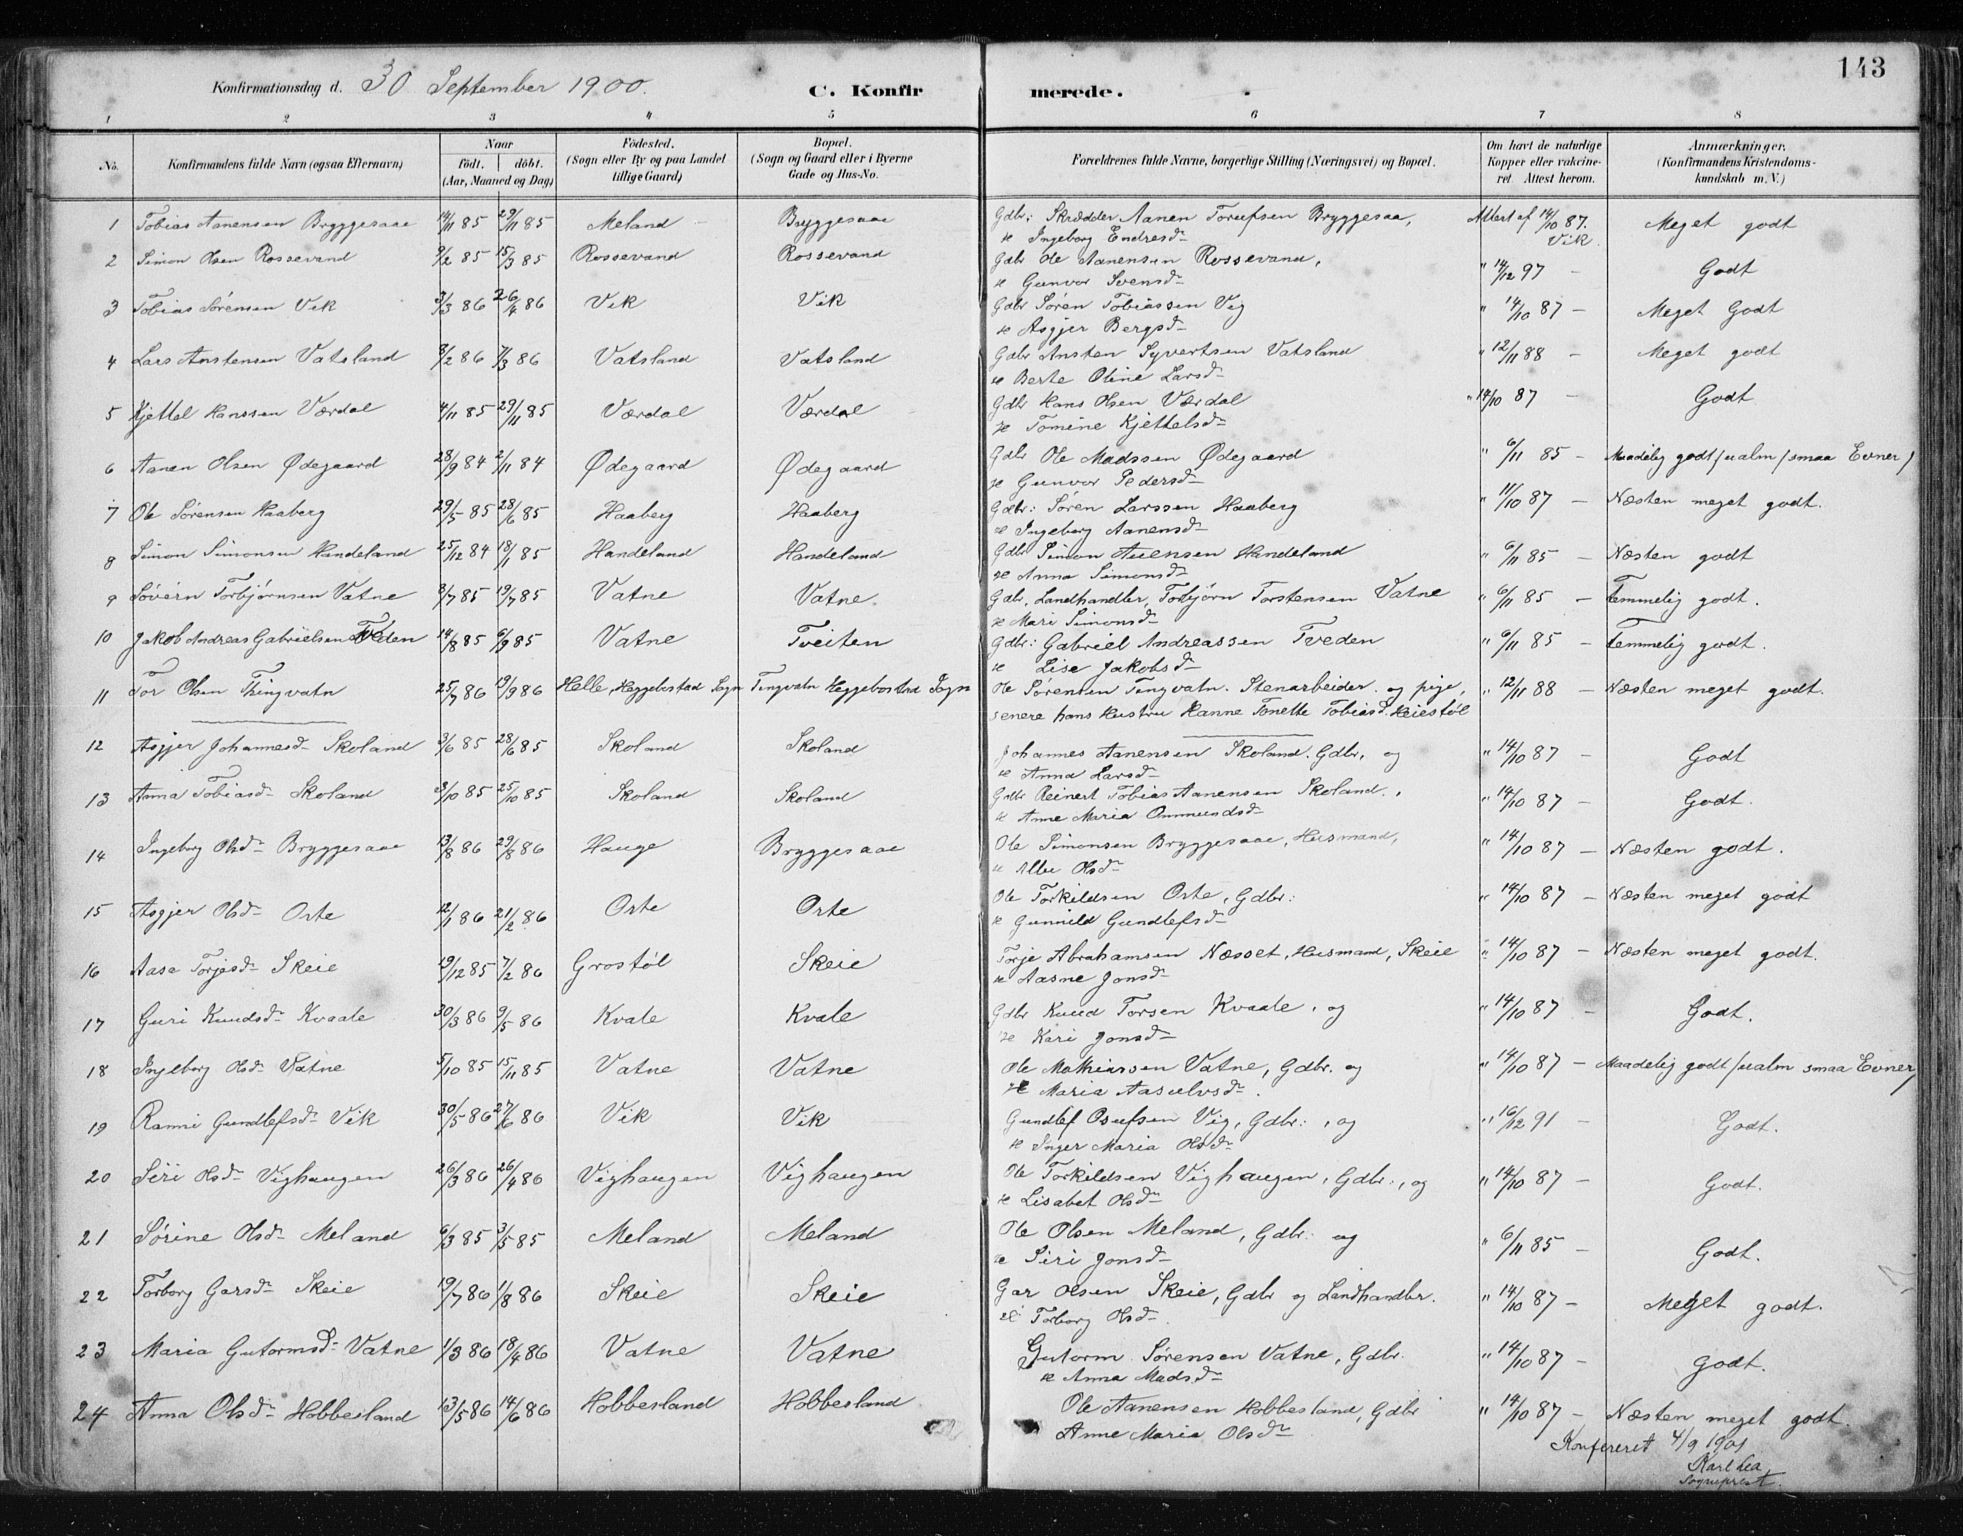 143
Konfirmationsdag d. 30 September 1900. C. Konfirmerede.
1 2 3 4 5 6 7 8
No. Konfirmandens fulde Navn (ogsaa Efternavn) Naar födt. döbt. (Aar, Maaned og Dag) Födested. (Sogn eller By og paa Landet tillige Gaard) Bopæl. (Sogn og Gaard eller i Byerne Gade og Hus-No. Forældrenes fulde Navne, borgerlige Stilling (Næringsvei) og Bopæl. Om havt de naturlige Kopper eller vakcineret. Attest herom. Anmærkninger. (Konfirmandens Kristendomskundskab m. V.)
1 Tobias Aanensen Bryggesaae 14/11 85 29/11 85 Meland Bryggesaae Gdbr: Skrædder Aanen Torufsen Bryggesaa, Attest af 14/10 87. Meget godt
Ingeborg Endresd. Vik.
2 Simon Olsen Rossevand 9/2 85 15/3 85 Rossevand Rossevand Gdbr Ole Aanensen Rossevand, " 14/12 97 - Godt
Gunvor Svensd.
3 Tobias Sörensen Vik 3/3 86 26/4 86 Vik Vik Gdbr Sören Tobiassen Vig " 14/10 87 - Meget Godt
Asgjer Bergsd.
4 Lars Anstensen Vatsland 8/2 86 7/3 86 Vatsland Vatsland Gdbr Ansten Syvertsen Vatsland " 12/11 88 - Meget godt
Berte Oline Larsd.
5 Kjettel Hanssen Værdal 4/11 85 29/11 85 Værdal Værdal Gdbr Hans Olsen Værdal " 14/10 87 - Godt
Tomine Kjettelsd.
6 Aanen Olsen Ødegaard 28/9 84 2/11 84 Ødegaard Ødegaard Gdbr Ole Madssen Ødegaard " 6/11 85 - Maadelig godt /ualm / smaa Evner /
Gunvor Pedersd.
7 Ole Sörensen Haaberg 29/5 85 28/6 85 Haaberg Haaberg Gdbr: Sören Larssen Haaberg " 11/10 87 - Næsten meget godt.
Ingeborg Aanensd.
8 Simon Simonsen Handeland 25/12 84 18/1 85 Handeland Handeland Gdbr Simon Handeland " 6/11 85 - Næsten godt
Anna Simonsd.
9 Sövérn Torbjörnsen Vatne 3/7 85 19/7 85 Vatne Vatne. Gdbr, Landhandler, Torbjörn Torstensen Vatne " 6/11 85 - Temmelig godt.
Mari Simonsd.
10 Jakob Andreas Gabrielsen Tveden 14/8 85 6/9 85 Vatne Tveiten Gdbr: Gabriel Andreassen Tveden " 6/11 85 - Temmelig godt.
Lise Jakobsd.
11 Tor Olsen Tingvatn 25/7 86 19/9 86 Helle, Heggebostad Sogn Tingvatn Heggebostad Sogn Ole Sörensen Tingvatn. Stenarbeider og pige, " 12/11 88 - Næsten meget godt.
senere hans Hustru Hanne Tonette Tobiasd. Heiestöl
12 Asgjer Johannesd. Skoland 3/6 85 28/6 85 Skoland Skoland Johannes Aanensen Skoland. Gdbr, og " 14/10 87 - Godt
Anna Larsd.
13 Anna Tobiasd. Skoland 3/10 85 25/10 85 Skoland Skoland Gdbr Reinert Tobias Aanensen Skoland., " 14/10 87 - Godt.
Anne Maria Ommundsd.
14 Ingeborg Olsd. Bryggesaae 13/8 86 29/8 86 Hauge Bryggesaae Ole Simonsen Bryggesaae, Husmand, " 14/10 87 - Næsten godt.
Olsd.
15 Asgjer Olsd. Oste 12/1 86 21/2 86 Oste Oste Ole Torkildsen Oste, Gdbr: " 14/10 87 - Næsten meget godt
Gunnild Gundlefsd.
16 Aase Torjesd. Skeie 19/12 85 7/2 86 Grostöl Skeie Torje Abrahamsen Næsset, Husmand, Skeie " 14/10 87 - Næsten meget godt.
Aasne Jonsd.
17 Guri Knudsd. Kvaale 30/3 86 9/5 86 Kvale Kvale Gdbr Knud Torsen Kvaale, og " 14/10 87 - Godt.
Kari Jonsd.
18 Ingeborg Olsd. Vatne 5/10 85 15/11 85 Vatne Vatne Ole Mathiassen Vatne, Gdbr. og " 14/10 87 - Maadelig godt /ualm smaa Evner/
Maria Aasulvsd.
19 Ranni Gundlefsd. Vik 30/5 86 27/6 86 Vik Vik Gundlef Osufsen Vig, Gdbr:, og " 16/12 91 - Godt.
Inger Maria Olsd.
20 Siri Olsd. Vighaugen 26/3 86 26/4 86 Vighaugen Vighaugen Ole Torkildsen Vighaugen, Gdbr:, og " 14/10 87 - Godt.
Lisabet Olsd.
21 Sörine Olsd. Meland 6/3 85 3/5 85 Meland Meland Ole Olsen Meland, Gdbr: og " 6/11 85 - Godt.
Siri Jonsd.
22 Torborg Garsd. Skeie 19/7 86 1/8 86 Skeie Skeie Gar Olsen Skeie, Gdbr og Landhandler. " 14/10 87 - Meget godt.
Torborg Olsd.
23 Maria Gutormsd. Vatne 1/3 86 18/4 86 Vatne Vatne Gutorm Sörensen Vatne, Gdbr. " 14/10 87 - Godt.
Anna Madsd.
24 Anna Olsd. Hobbesland 13/5 86 14/6 86 Hobbesland Hobbesland Ole Aanensen Hobbesland, Gdbr " 14/10 87 - Næsten meget godt.
Anne Maria Olsd.
Konfereret 4/9 1901
Karl Lea
Sogneprest.